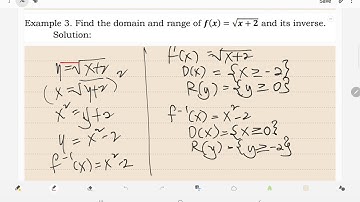 Example 3. Find the domain and range of f(x) = √x + 2 and its inverse.
Solution:
y = √x+2
(x = √y+2)²
x² = y+2
y = x²-2
f⁻¹(x) = x²-2
f(x) = √x+2
D(x) = {x ≥ -2}
R(y) = {y ≥ 0}
f⁻¹(x) = x²-2
D(x) = {x ≥ 0}
R(y) = {y ≥ -2}